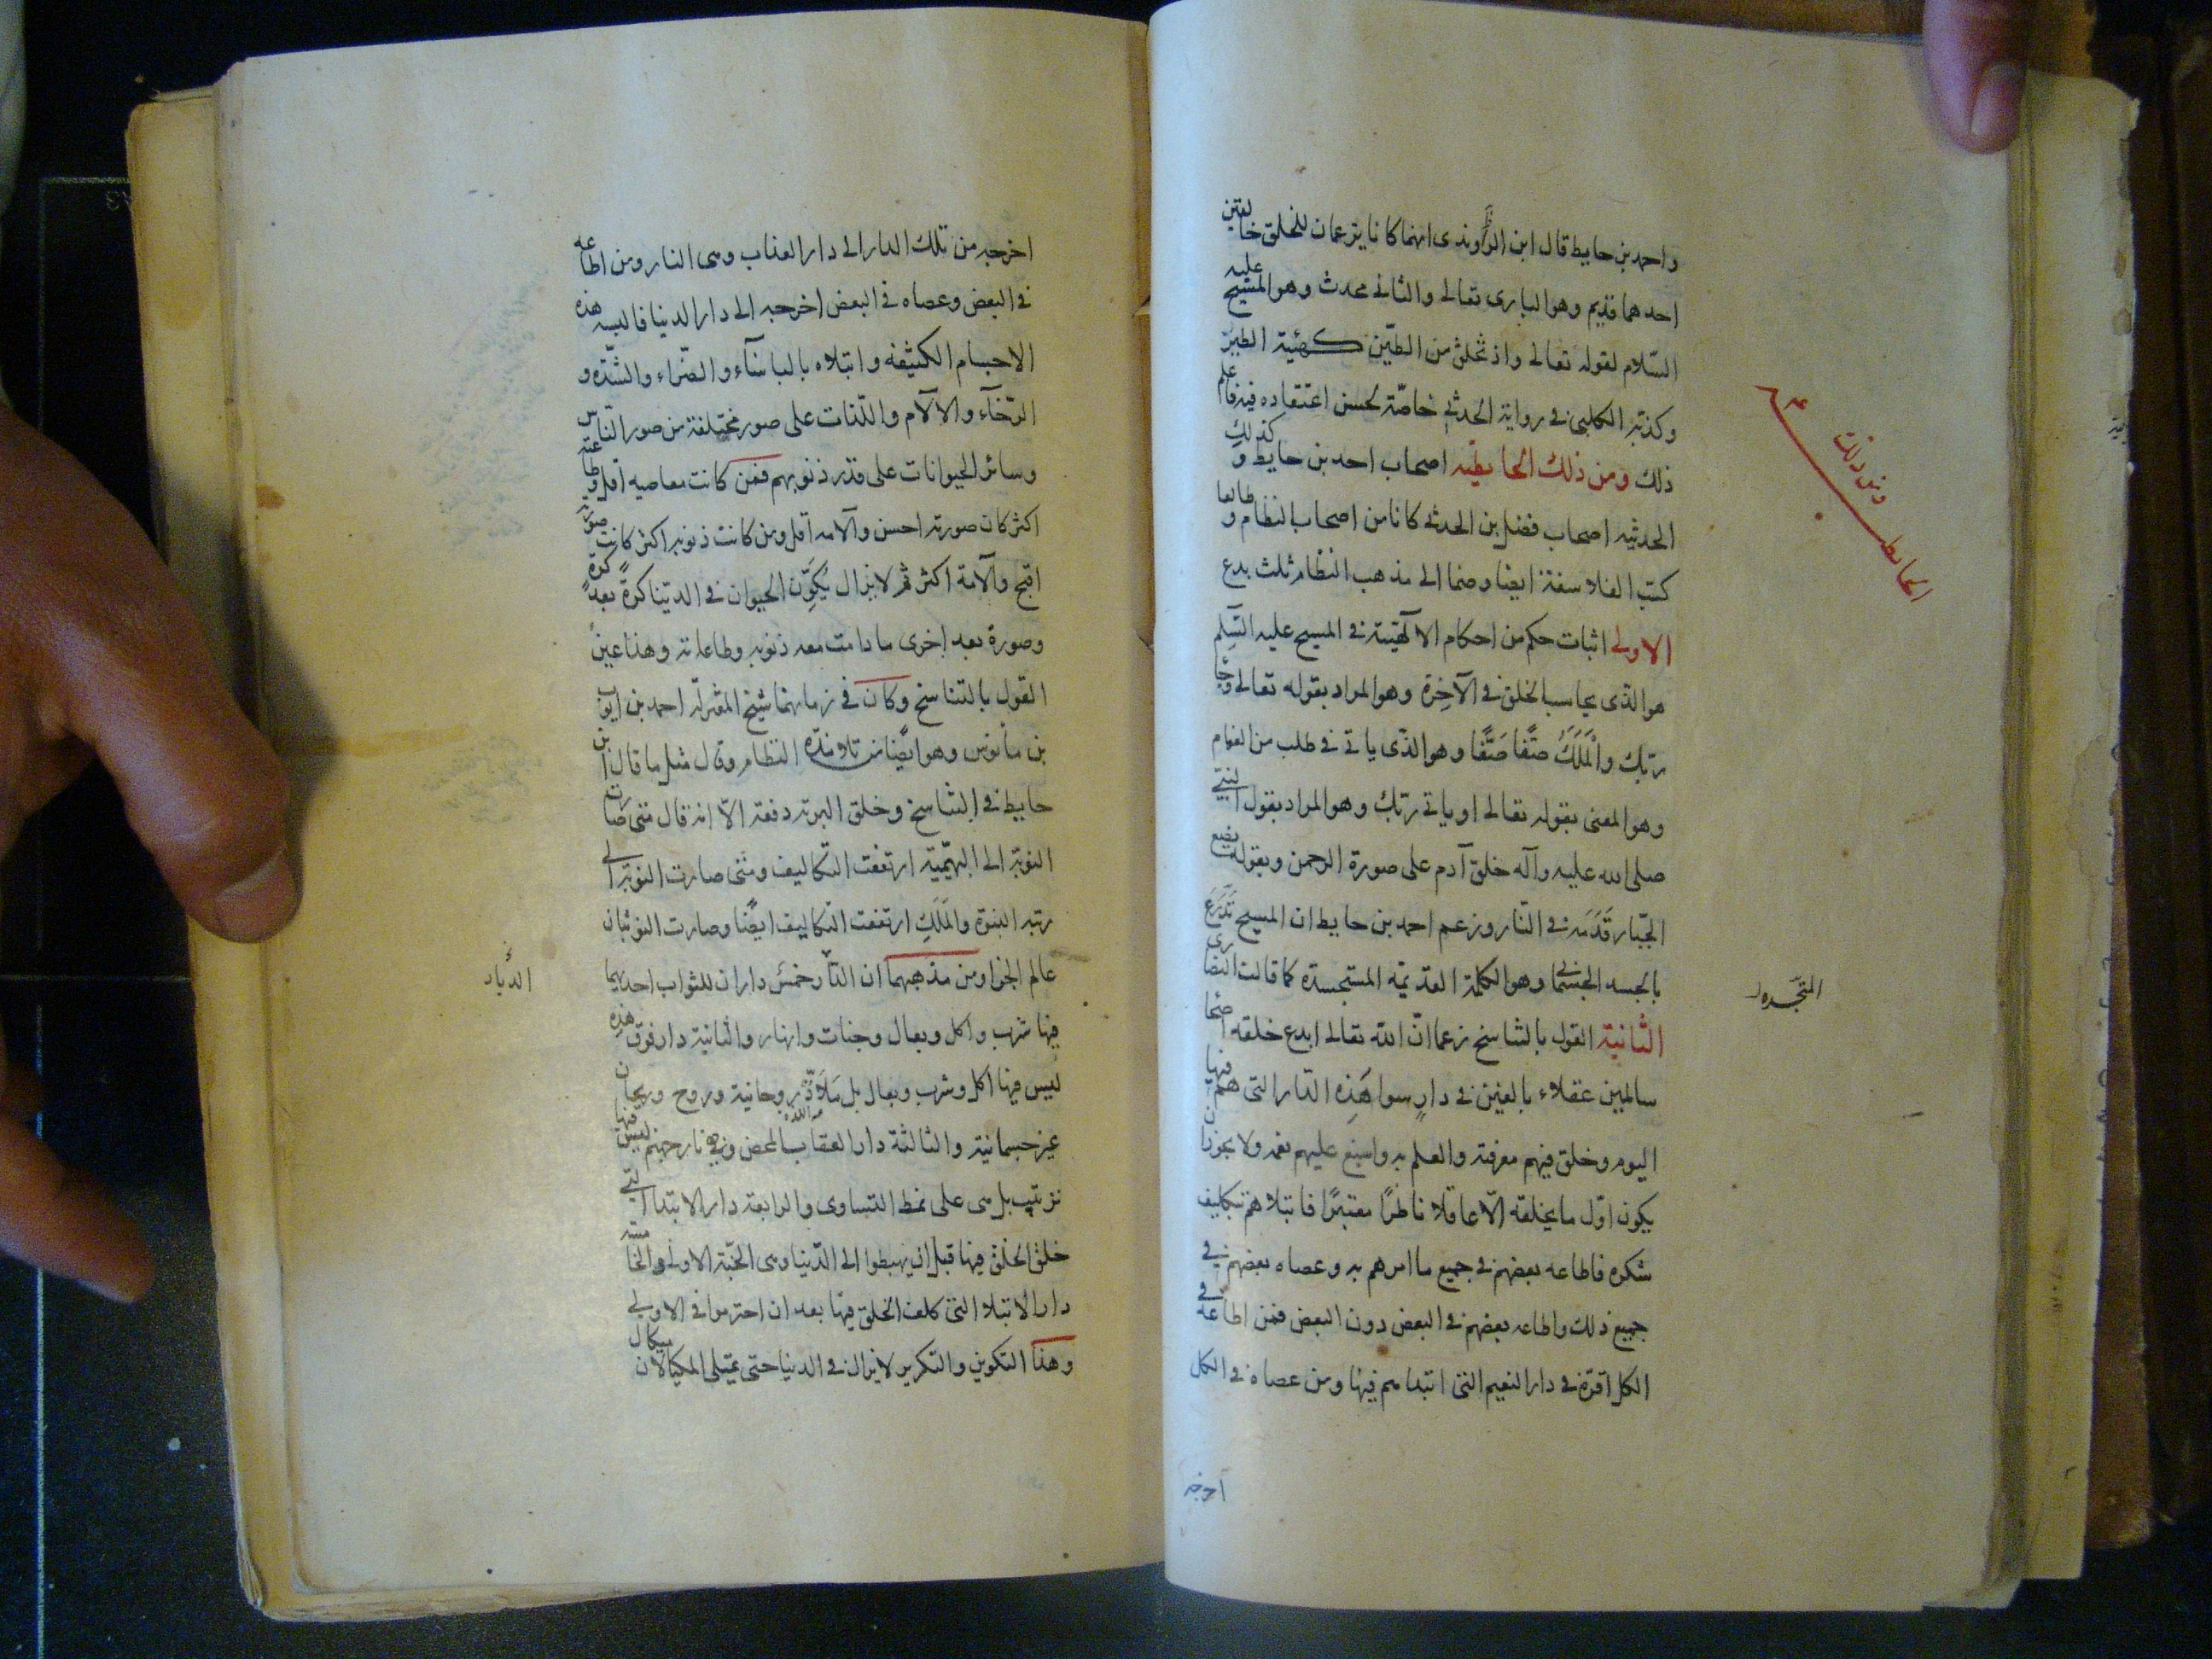 واحمد بن حايط قال ابن الراوندى انهما كانا يزعمان للخلق خالقين
احدهما قديم وهو البارى تعالى والثانى محدث وهو المسيح عليه
السّلام لقوله تعالى واذ تخلق من الطّين كهئية الطير
وكذبّه الكلبى فى رواية الحدثى خاصّة لحسن اعتقاده فيه فاعلم
ذلك ومن ذلك الحايطيه اصحاب احمد بن حايط وكذلك
الحدثيه اصحاب فضل بن الحدثى كانا من اصحاب النظام وطالعا
كتب الفلاسفة ايضا وضما الى مذهب النظام ثلث بدع
الاولى اثبات حكم من احكام الآلهيّة فى المسيح عليه السّلم
هو الذى يحاسب الخلق فى الآخِرة وهو المراد بقوله تعالى وجآ
ربّك والْمَلَكُ صَفًّا صَفًّا وهو الذى ياتى فى طلب من الغمام
وهو المعنى بقوله تعالى او ياتى ربّك وهو المراد بقول النبى
صلى الله عليه وآله خلق آدم على صورة الرحمن وبقوله يضع
الجّبار قَدَمَه فى النّار وزعم احمد بن حايط ان المسيح تَدَرَّعَ
بالجسد الجسمانى وهو الكلمة القديمّه المستجسدة كما قالت النصارى
الثانية القول بالتناسخ زعما انّ الله تعالى ابدع خلقه اصحّا
سالمين عقلاء بالغين فى دارٍ سوا هَذِه الدّار التى هم فيها
اليوم وخلق فيهم معرفتة والعلم به واسبغ عليهم نعمه ولا يجوز ان
يكون اوّل ما يخلقه الّا عاقلا ناظرًا معتبرًا فابتلاهم بتكليف
شكره فاطاعه بعضهم فى جميع ما امرهم به وعصاه بعضهم فى
جميع ذلك واطاعه بعضهم فى البعض دون البعض فمن اطاعه فى
الكل اقرّه فى دار النعيم التى ابتداهم فيها ومن عصاه فى الكل
اخرجه
ومن ذلك
الحايطيه
المتجسّده
اخرجه من تلك الدار الى دار العذاب وهى النار ومن اطاعه
فى البعض وعصاه فى البعض اخرجه الى دار الدنيا فالبسه هذه
الاجسام الكثيفه وابتلاه بالباسآء والضّراء والشدّه و
الرّخآء والآلام واللّذات على صور مختلفة من صور النّاس
وسائر الحيوانات على قدر ذنوبهم فمن كانت معاصيه اقل وطاعته
اكثر كان صورته احسن وآلامه اقل ومن كانت ذنوبه اكثر كانت صورته
اقبح وآلامة اكثر ثم لا يزال يُكوِّن الحيوان فى الدّينا كرةً بعد كرة
وصورة بعد اخرى ما دامت معه ذنوبه وطاعاته وهذا عين
القول بالتناسخ وكان فى زمانهما شيخ المعتزلة احمد بن ايوب
بن مانوس وهو ايضًا من تلامذه النظام وقال مثل ما قال ابن
حايط فى التناسخ وخلق البريه دفعة الّا انه قال متى صارت
النوبة الى البهيّمية ارتفعت التكاليف ومتى صارت النوبة الى
رتبه النبوّة والمَلَكِ ارتفعت التكاليف ايضًا وصارت النوبتان
عالم الجزا ومن مذهبهما ان الدّار خمس داران للثواب احديهما
فيها شرب واكل وبعال وجنات وانهار والثانية دار فوق هذه
ليس فيها اكل وشرب وبعال بل مَلَاذّ روحانية وروح وريحان
غير جسمانية والثالثة دار العقاب المحض وهى نار جهنم ليس فيها
ترتيب بل هى على نمط التساوى والرابعة دار الابتدا التى
خلق الخلق فيها قبل ان يهبطوا الى الدّنيا وهى الجنّة الاولى والخامسة
دار الابتلا التى كلف الخلق فيها بعد ان اجترموا فى الاولى
وهذا التكوين والتكرير لا يزال فى الدنيا حتى يمتلى المكيالان ميكال